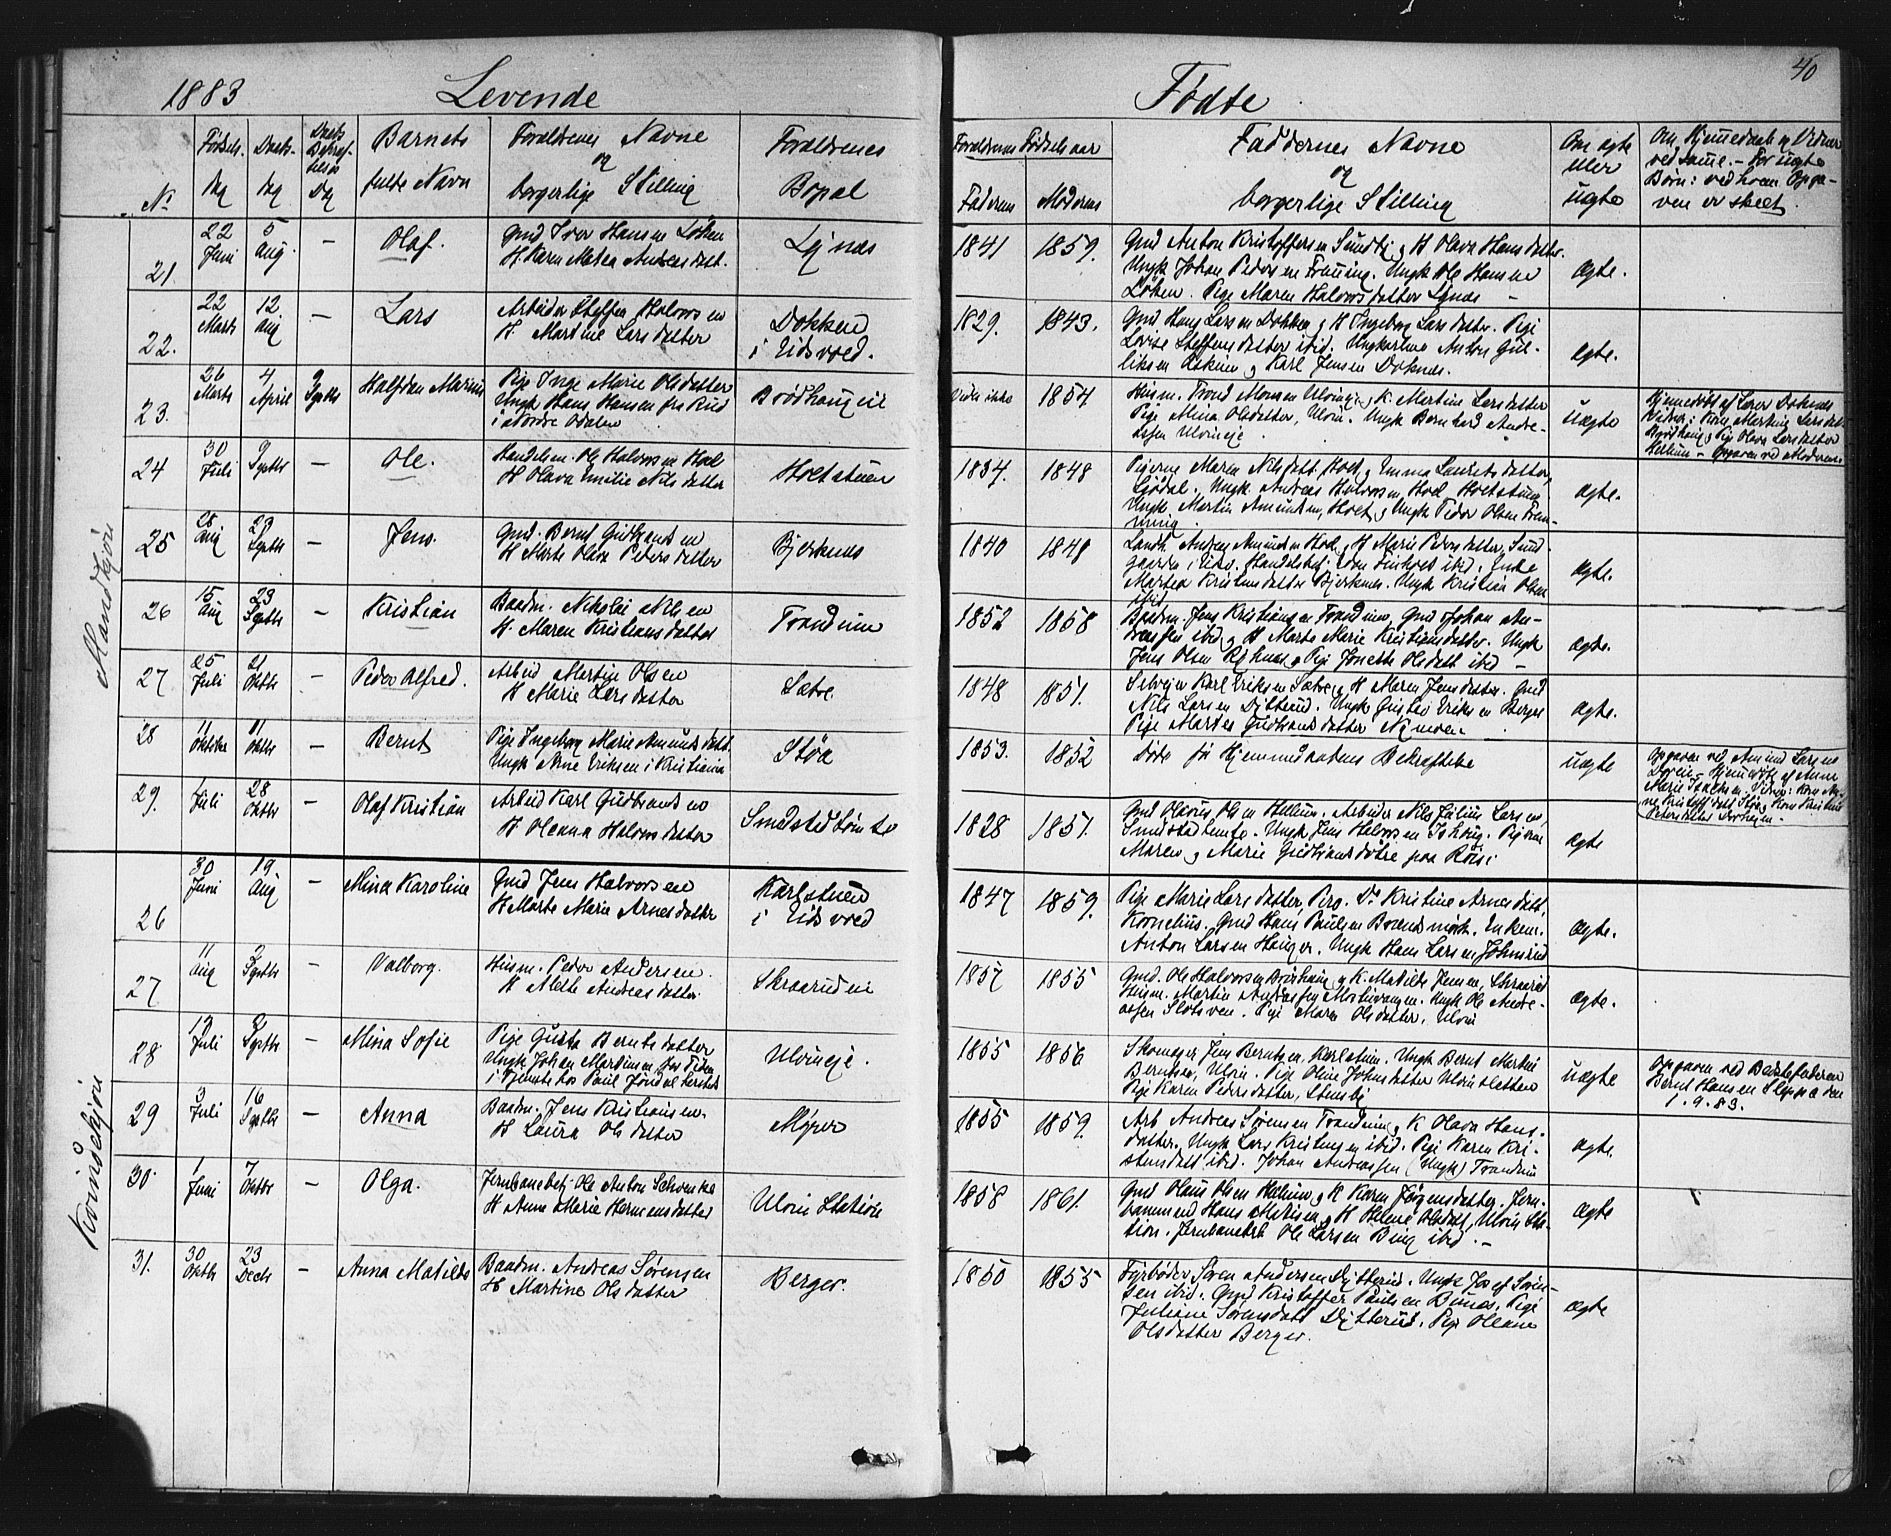 1883 Levende Fødte 40
No. Fødsels- dag Daabs- dag Daabs Bekræf- telses Dag Barnets fulde Navn Forældrenes Navne og borgerlige Stilling Forældrenes Bopæl Forældrenes Fødselsaar Faderens Moderens Faddernes Navne og borgerlige Stilling Om ægte eller uægte Om Hjemmedaab og Vidner
ved samme. - For uægte
Børn: ved hvem Opga-
ven er skeet.
Mandkjøn
21. 22 Juni 5 Aug. - Olaf. Gmd Iver Hansen Løken
H. Karen Matea Andreasdatt. Lynæs 1841 1859. Gmd Anton Kristoffersen Sundby, og K Olava Hansdatter.
Ungk Johan Pedersen Frauing. Ungk Ole Hansen
Løken. Pige Maren Halvorsdatter Lynæs - ægte.
22. 22 Marts 12 Aug - Lars Arbeider Steffen Halvorsen
H. Martine Larsdatter Dokken
i Eidsvold. 1829. 1843. Gmd. Hans Larsen Dokken og K Ingeborg Larsdatter. Pige
Lovise Steffensdatter ibid. Ungkarlene Anton Gul-
liksen og Karl Jensen Doknæs. ægte.
23. 26 Marts 4 April 9 Septbr Halfdan Marius Pige Inge Marie Olsdatter
Ungk. Hans Hansen fra Rud
i Nordre Odalen Brødhaugeie Vides ikke 1854 Husm. Trond Monsen Ulvineie, K. Martine Larsdatter
Pige Mina Olsdatter, Ulvin. Ungk Bernhard Andre-
assen Ulvineie. uægte Hjemmedøbt af Lærer Doknæs
Vidner: Kone Martine Larsdatt
Brødhaug, og Pige Olava Larsdatter
Hellum - Opgaven ved Moderen
24 30 Juli 9 Septbr - Ole. Handelsm. Ole Halvorsen Hoel
H Olava Emilie Nilsdatter Holtstuen 1834. 1848 Pigerne Maren Nilsdatt. Hoel, og Emma Lauritsdatter,
Sjødal. Ungk. Andreas Halvorsen Hoel Holtstuen
Ungk. Martin Amundsen, Holt, og Ungk Peder Olsen Fren-
ning. ægte.
25 28 Aug 23 Septbr - Jens. Gmd. Bernt Gudbrandsen
H. Marte Olea Pedersdatter Bjerknæs 1840 1848 Landh. Andreas Amundsen Hoel, K Marie Pedersdatter, Sund-
Martea Kristensdatter Bjerknæs. Ungk Kristian Olsen
ibid ægte.
26 15 Aug 23 Septbr - Kristian Baadm. Nikolai Nilsen
H. Maren Kristiansdatter Trandum 1852 1858 Baadm. Jens Kristiansen Trandum, Gmd Johan An-
dreassen ibid, og K Marte Marie Kristiansdatter. Ungk
Jens Olsen og Pige Jonette Olsdatt ibid - ægte.
27 25 Juli 21 Oktbr - Peder Alfred. Arbeid Martin Olsen
H Marie Larsdatter Sætre. 1848 1851. Selveier Karl Eriksen Sætre, og K Maren Jensdatter. Gmd
Nils Larsen Dytterud. Ungk Gustav Eriksen Berger
Pige Martea Gudbransdatter Nymoen. ægte.
28 11 Oktobe 21 Oktbr - Bernt Pige Ingeborg Marie Amundsdatt.
Ungk Arne Eriksen i Kristiania Støa 1853. 1852 Døde før Hjemmedaabens Bekræftelse uægte Opgaven ved Amund Larsen
Dorrien. Hjemdøbt af Anne
29. 4 Juli 28 Oktbr - Olaf Kristian Arbeid Karl Gudbrandsen
H Oleana Halvorsdatter Smedstadtomte 1828 1851. Gmd Olaus Olsen Hellum. Arbeider Nils Julius Larsen,
Smedstadtomte. Ungk Jens Halvorsen. Pigerne
Maren og Marie Gudbransdøtre paa Røisi ægte
Kvindekjøn
26 30 Juni 19 Aug - Mina Karoline Gmd Jens Halvorsen
H Marte Marie Arnesdatter Karlstuen
i Eidsvold 1847 1859. Pige Marie Larsdatter, Piro. Do Kristine Arnesdatt,
Kornelius. Gmd Hans Paulsen Brændmoth. Enkem.
Anton Larsen Hauger. Ungk Hans Larsen Johnsrud ægte.
27 11 Aug 2 Septbr - Valborg. Husm. Peder Andersen.
H Mette Andreasdatter. Skraarudeie 1857 1855 Gmd. Ole Halvorsen Brøshaug, og K. Matilde Jensen, Skraarud
Husm. Martin Andersen Mostuvangen. Ungk Ole Andre-
assen Slotsven. Pige Maren Olsdatter, Ulvin ægte.
28 13 Juli 2 Septbr - Mina Sofie Pige Gusta Berntsdatter
Ungk Johan Martinsen, for Tiden
i Tjeneste hos Paul Jøndal Ulvineie. 1855 1856 Skomager Jens Berntsen, Karlstuen. Ungk Bernt Martin
Berntsen, Ulvin. Pige Oline Johnsdatter Ulvinsletten
Pige Karen Pedersdatter, Stensby uægte Opgaven ved Bedstefaderen
Bernt Hansen Sloppa den
1.9.83.
29 3 Juli 16 Septbr - Anna Baadm. Jens Kristiansen.
H. Laura Olsdatter Møper 1855 1859. Arb Andreas Sørensen Trandum, og K Olava Hans-
datter. Ungk Lars Kristensen ibid. Pige Karen Kri-
stensdatt ibid. Johan Andreassen (Ungk) Trandum ægte.
30. 1 Juni 7 Oktbr - Olga. Jernbanebetj. Ole Anton Schvenke
H Anne Marie Hermensdatter Ulvin Station 1858 1861. Gmd Olaus Olsen Hellum, og K Karen Jørgensdatter. Jern-
banemend Hans Matisen, og K Helene Olsdatt, Ulvin Sta-
tion. Jernbanearb Ole Larsen Bing ibid. - ægte
31. 30 Oktbr 23 Decb - Anna Matilde Baadm. Andreas Sørensen
H Martine Olsdatter Berger. 1850 1855 Fyrbøder Søren Andersen Dytterud. Ungk Josef Søren-
sen ibid. Gmd Kristoffer Paulsen Bunæs, Pige
Juliane Sørensdatt Dytterud. Pige Oleane
Olsdatter Berger. ægte